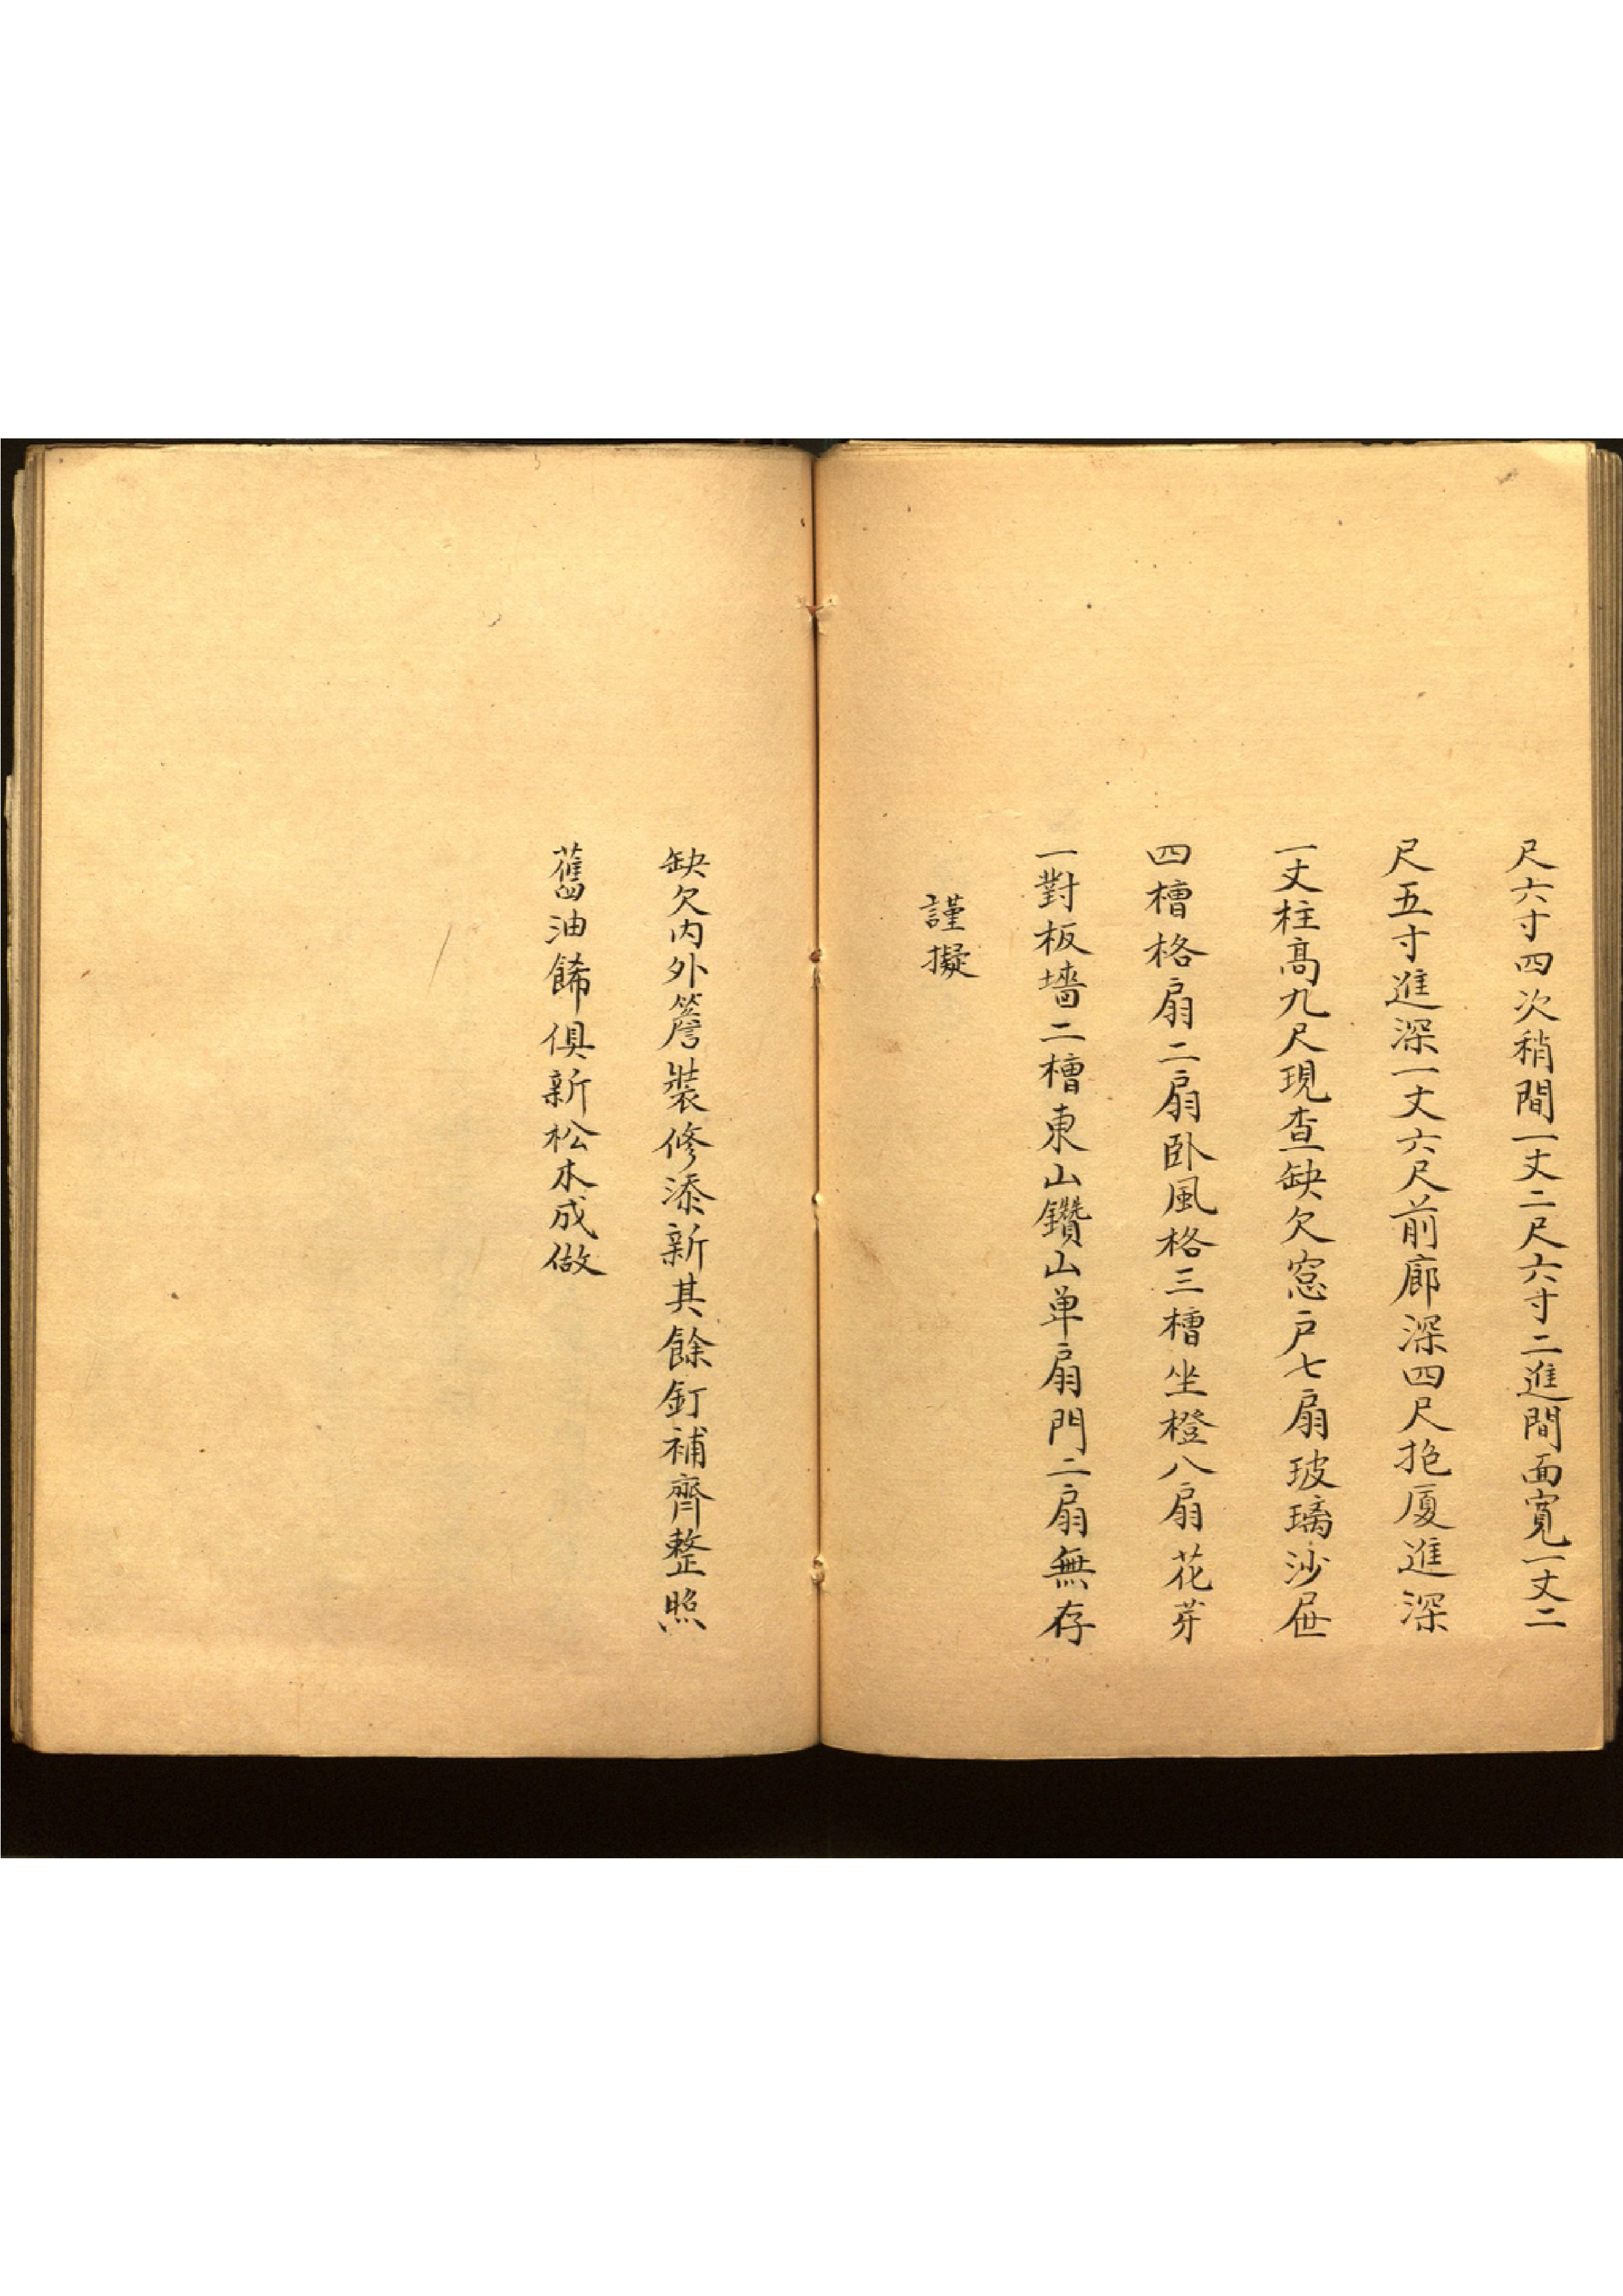 尺六寸四次稍間一丈二尺六寸二進間面寬一丈二
尺五寸進深一丈六尺前廊深四尺抱厦進深
一丈柱高九尺現查缺欠窓戶七扇玻璃沙屉
四槽格扇二扇卧風格三槽坐橙八扇花芽
一對板墻二槽東山鑽山单扇門二扇無存
謹擬
缺欠内外簷裝修添新其餘釘補齊整照
舊油餙俱新松木成做